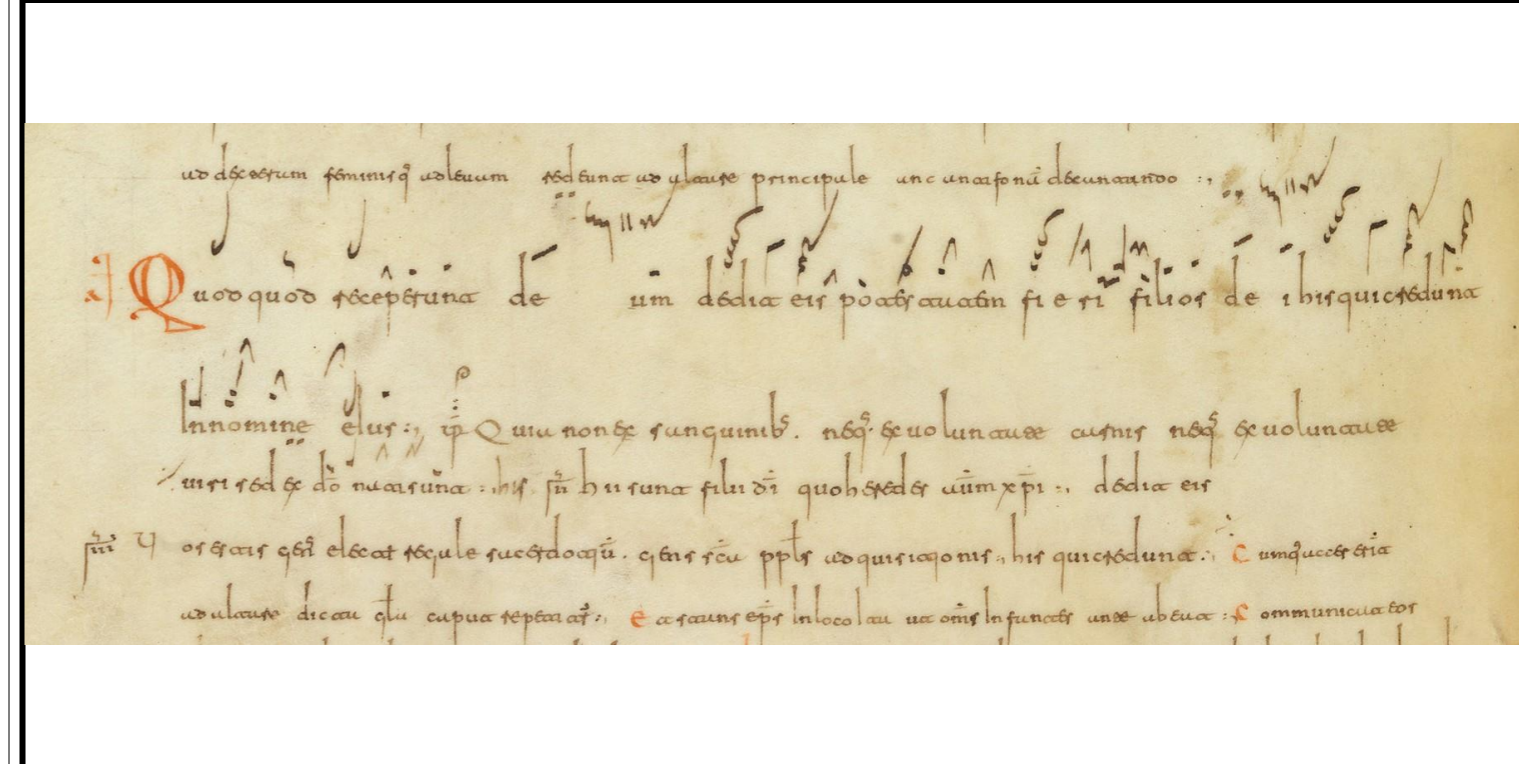 ad dexteram feminisq ad levam redeunt ad altare principale anc antifonã decantando :,
a) Quodquod receperunt de um dedit eis potestatem fi e ri filios de i hisquicredunt
In nomine eius :, Quia non ex sanguinibs. neq. ex voluntate carnis neq ex voluntate
viri sed ex dō nati sunt :, his sm̃ hii sunt filii dī quoheredes aūm xp̄i :, dedit eis
sm̃ U os estis gens elect regale sacerdotiū. gens scā ppls adquisitionis :, his qui credunt :, Cumq accesserit
ad altare caput repetat :, eps In loco ut om̄s Infantes Communicat eos